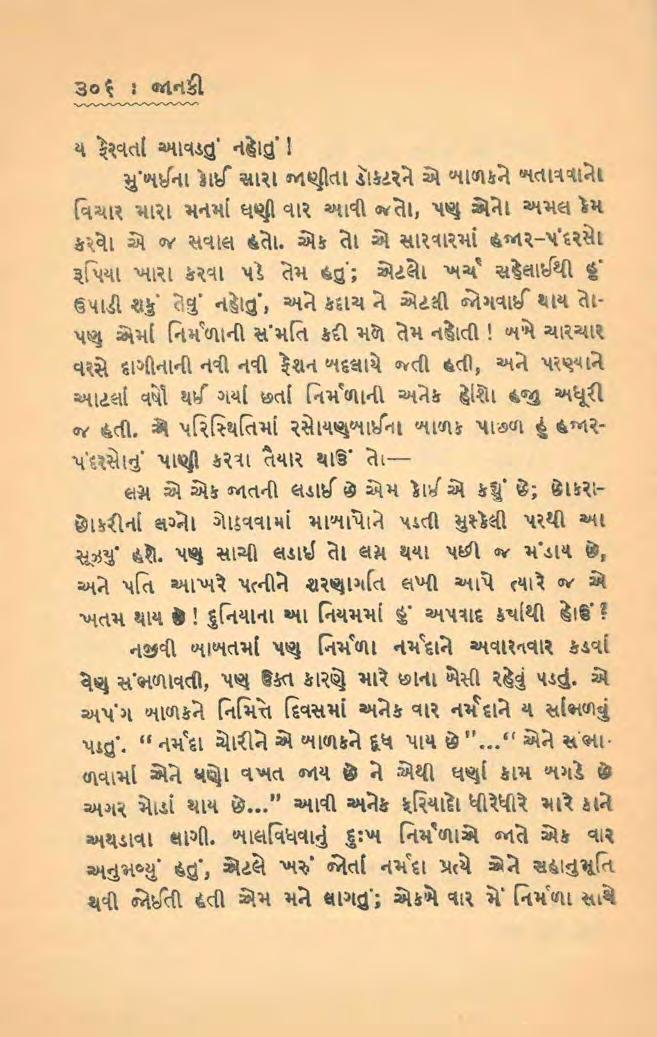 ૩૦૬ : જાનકી
ય ફેરવતાં આવડતું નહોતું !
મુંબઈના કોઈ સારા જાણીતા ડૉક્ટરને એ બાળકને બતાવવાનો
વિચાર મારા મનમાં ઘણી વાર આવી જતો, પણ એનો અમલ કેમ
કરવો એ જ સવાલ હતો. એક તો એ સારવારમાં હજાર-પંદરસો
રૂપિયા ખારા કરવા પડે તેમ હતું; એટલો ખર્ચ સહેલાઈથી હું
ઉપાડી શકું તેવું નહોતું, અને કદાચ ને એટલી જોગવાઈ થાય તો-
પણ એમાં નિર્મળાની સંમતિ કદી મળે તેમ નહોતી ! બબે ચારચાર
વરસે દાગીનાની નવી નવી ફૅશન બદલાયે જતી હતી, અને પરણ્યાને
આટલાં વર્ષો થઈ ગયાં છતાં નિર્મળાની અનેક હોંશો હજી અધૂરી
જ હતી. એ પરિસ્થિતિમાં રસોયણબાઈના બાળક પાછળ હું હજાર-
પંદરસોનું પાણી કરવા તૈયાર થાઉં તો—
લગ્ન એ એક જાતની લડાઈ છે એમ કોઈ એ કહ્યું છે; છોકરા-
છોકરીનાં લગ્નો ગોઠવવામાં માબાપોને પડતી મુશ્કેલી પરથી આ
સૂઝ્યું હશે. પણ સાચી લડાઈ તો લગ્ન થયા પછી જ મંડાય છે,
અને પતિ આખરે પત્નીને શરણાગતિ લખી આપે ત્યારે જ એ
ખતમ થાય છે ! દુનિયાના આ નિયમમાં હું અપવાદ ક્યાંથી હોઉં ?
નજીવી બાબતમાં પણ નિર્મળા નર્મદાને અવારનવાર કડવાં
વેણ સંભળાવતી, પણ ઉક્ત કારણે મારે છાના બેસી રહેવું પડતું. એ
અપંગ બાળકને નિમિત્તે દિવસમાં અનેક વાર નર્મદાને ય સાંભળવું
પડતું. “ નર્મદા ચોરીને એ બાળકને દૂધ પાય છે ”...“ એને સંભા-
ળવામાં એને ઘણો વખત જાય છે ને એથી ઘણાં કામ બગડે છે
અગર મોડાં થાય છે...” આવી અનેક ફરિયાદો ધીરેધીરે મારે કાને
અથડાવા લાગી. બાલવિધવાનું દુઃખ નિર્મળાએ જાતે એક વાર
અનુભવ્યું હતું, એટલે ખરું જોતાં નર્મદા પ્રત્યે એને સહાનુભૂતિ
થવી જોઈતી હતી એમ મને લાગતું; એકબે વાર મેં નિર્મળા સાથે